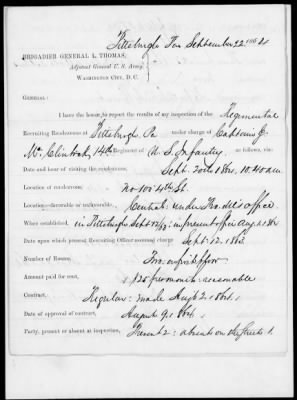 Pittsburgh Pa September 22 1864
BRIGADIER GENERAL L. THOMAS,
Adjutant General U. S. Army,
WASHINGTON CITY, D. C.
GENERAL:
I have the honor to report the results of my inspection of the Regimental
Recruiting Rendezvous at Pittsburgh, Pa under charge of Captain G.
McClintock, 14th Regiment of U. S. Infantry, as follows, viz:
Date and hour of visiting the rendezvous, Sept. 20th 1864. 10.40 am
Location of rendezvous, No 100 4th St.
Location—favorable or unfavorable. Central: under Pro. Mar's office
When established, in Pittsburgh Sept 12/63: in present office Aug. 1 1864
Date upon which present Recruiting Officer assumed charge Sept: 12. 1863
Number of Rooms, Two: on first floor
Amount paid for rent, $25 per month: reasonable
Contract, Regular: made Aug't 2. 1864.
Date of approval of contract, August 9. 1864.
Party, present or absent at inspection, Present 2: absent on the Streets 1.